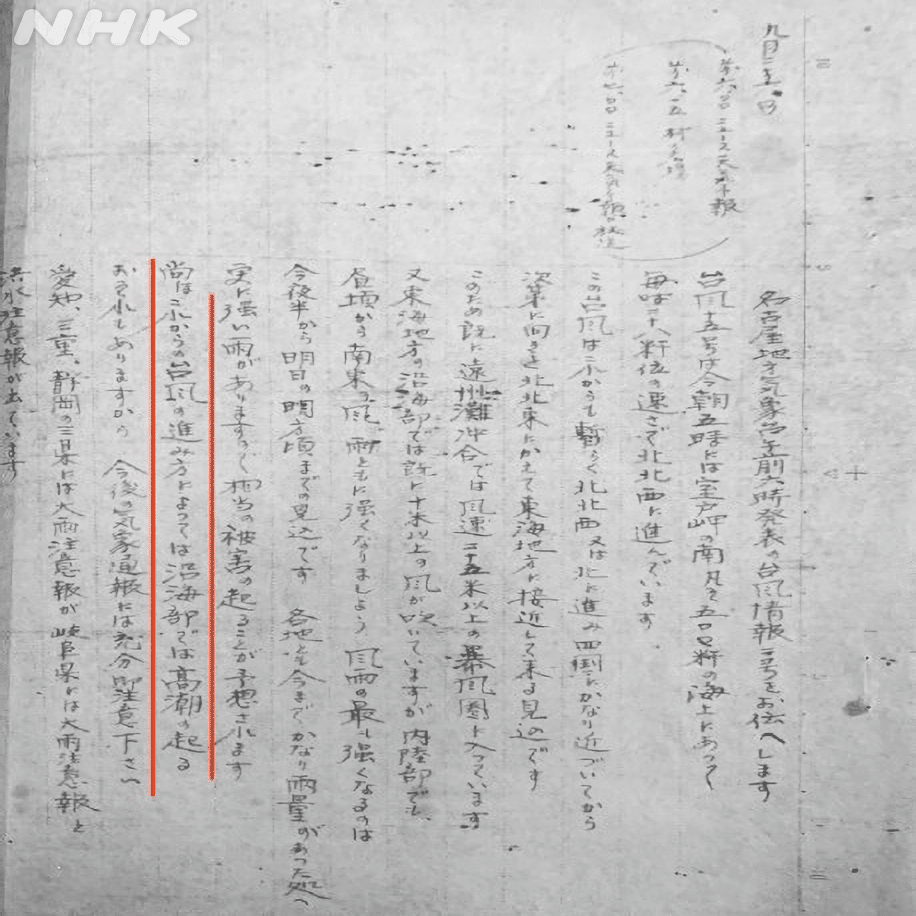 NHK
九月二十六日
前六、〇〇 ニュース 天気予報
前六、一五
前七、〇〇 ニュース 天気予報 放送
名古屋地方気象台午前六時発表の台風情報二号をお伝へします
台風十五号は今朝五時には室戸岬の南凡そ五〇〇粁の海上にあって
毎時二十八粁位の速さで北北西に進んでいます
この台風はこれからも暫らく北北西又は北に進み四国にかなり近づいてから
次第に向きを北北東にかえて東海地方に接近して来る見込です
このため既に遠州灘沖合では風速二十五米以上の暴風圏に入っています
又東海地方の沿海部では既に十米以上の風が吹いていますが内陸部でも、
昼頃から南東の風、雨ともに強くなりましよう 風雨の最も強くなるのは
今夜半から明日の明方頃までの見込です 各地とも今までかなり雨量があった処へ
更に強い雨がありますので相当の被害の起ることが予想されます
尚ほこれからの台風の進み方によっては沿海部では高潮の起る
おそれもありますから 今後の気象通報には充分御注意下さい
愛知、三重、静岡の三県には大雨注意報が岐阜県には大雨注意報と
洪水注意報が出ています